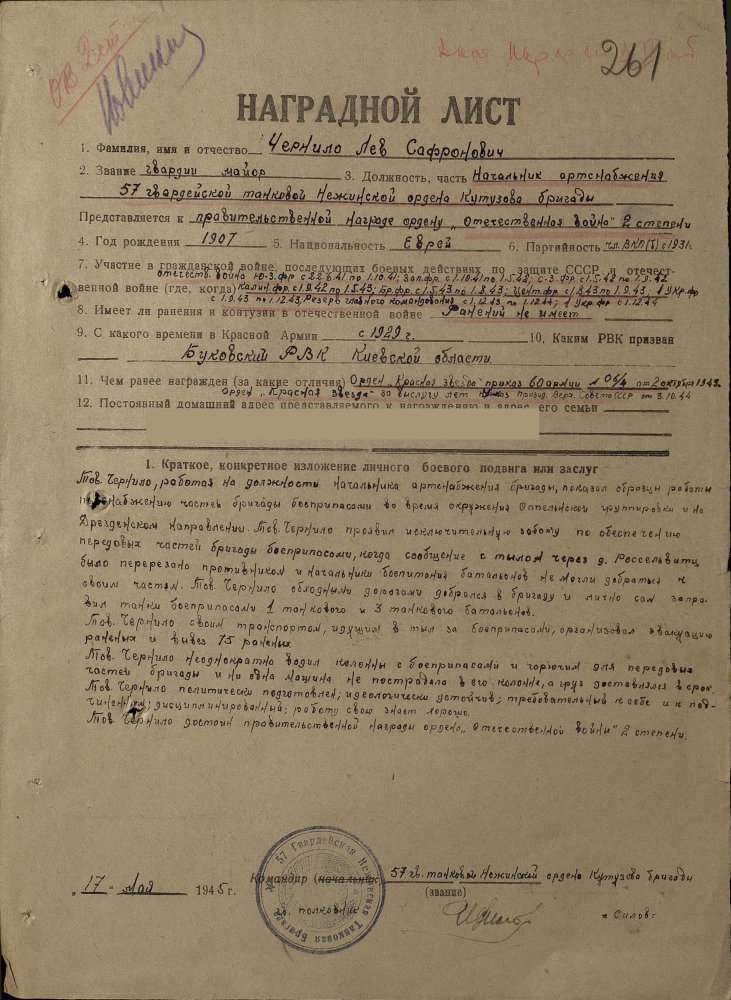 ОВ 2 ст
261
НАГРАДНОЙ ЛИСТ
1. Фамилия, имя и отчество Чернило Лев Сафронович
2. Звание гвардии майор 3. Должность, часть Начальник артснабжения
57 гвардейской танковой Нежинской ордена Кутузова бригады
Представляется к правительственной награде ордену „Отечественная война" 2 степени
4. Год рождения 1907 5. Национальность Еврей 6. Партийность чл. ВКП(б) с 1931г.
7. Участие в гражданской войне, последующих боевых действиях по защите СССР и отечест-
отечеств. война Ю-З. фр с 22.6.41 по 1.10.41; Зап. фр с 1.10.41 по 1.5.42; С-З. фр с 1.5.42 по 1.9.42
венной войне (где, когда) Калин. фр. с 1.9.42 по 1.5.43; Бр. фр. с 1.5.43 по 1.8.43; Цент. фр с 1.8.43 по 1.9.43; 1 Укр фр
с 1.9.43 по 1.12.43, Резерв главного командования с 1.12.43 по 1.12.44; 1 Укр фр с 1.12.44
8. Имеет ли ранения и контузии в отечественной войне Ранений не имеет
9. С какого времени в Красной Армии с 1929 г. 10. Каким РВК призван
Буковский РВК Киевской области.
11. Чем ранее награжден (за какие отличия) Орден „Красная звезда" приказ 60 армии № 04/ от 2 октября 1943.
Орден „Красная звезда" за выслугу лет Презид. Верх. Совета СССР от 3.10.44
12. Постоянный домашний адрес представляемого к награждению и адрес его семьи
1. Краткое, конкретное изложение личного боевого подвига или заслуг
Тов. Чернило, работая на должности начальника артснабжения бригады, показал образцы работы
по снабжению частей бригады боеприпасами во время окружения Оппельнской группировки и на
Дрезденском направлении. Тов. Чернило проявил исключительную заботу по обеспечению
передовых частей бригады боеприпасами, когда сообщение с тылом через д. Россельвитц
было перерезано противником и начальники боепитания батальонов не могли добраться к
своим частям. Тов. Чернило обходными дорогами добрался в бригаду и лично сам запра-
вил танки боеприпасами 1 танкового и 3 танкового батальонов.
Тов. Чернило своим транспортом, идущим в тыл за боеприпасами, организовал эвакуацию
раненых и вывез 75 раненых.
Тов. Чернило неоднократно водил колонны с боеприпасами и горючим для передовых
частей бригады и ни одна машина не пострадала в его колонне, а груз доставлялся в срок.
Тов. Чернило политически подготовлен; идеологически устойчив; требовательный к себе и к под-
чиненным; дисциплинированный; работу свою знает хорошо.
Тов. Чернило достоин правительственной награды ордена „Отечественной войны" 2 степени.
Командир (начальник) 57 гв. танковой Нежинской ордена Кутузова бригады
(звание)
„17" мая 1945 г.
гв. полковник
- Силов -
57 Гвардейская Нежинская Танковая Бригада